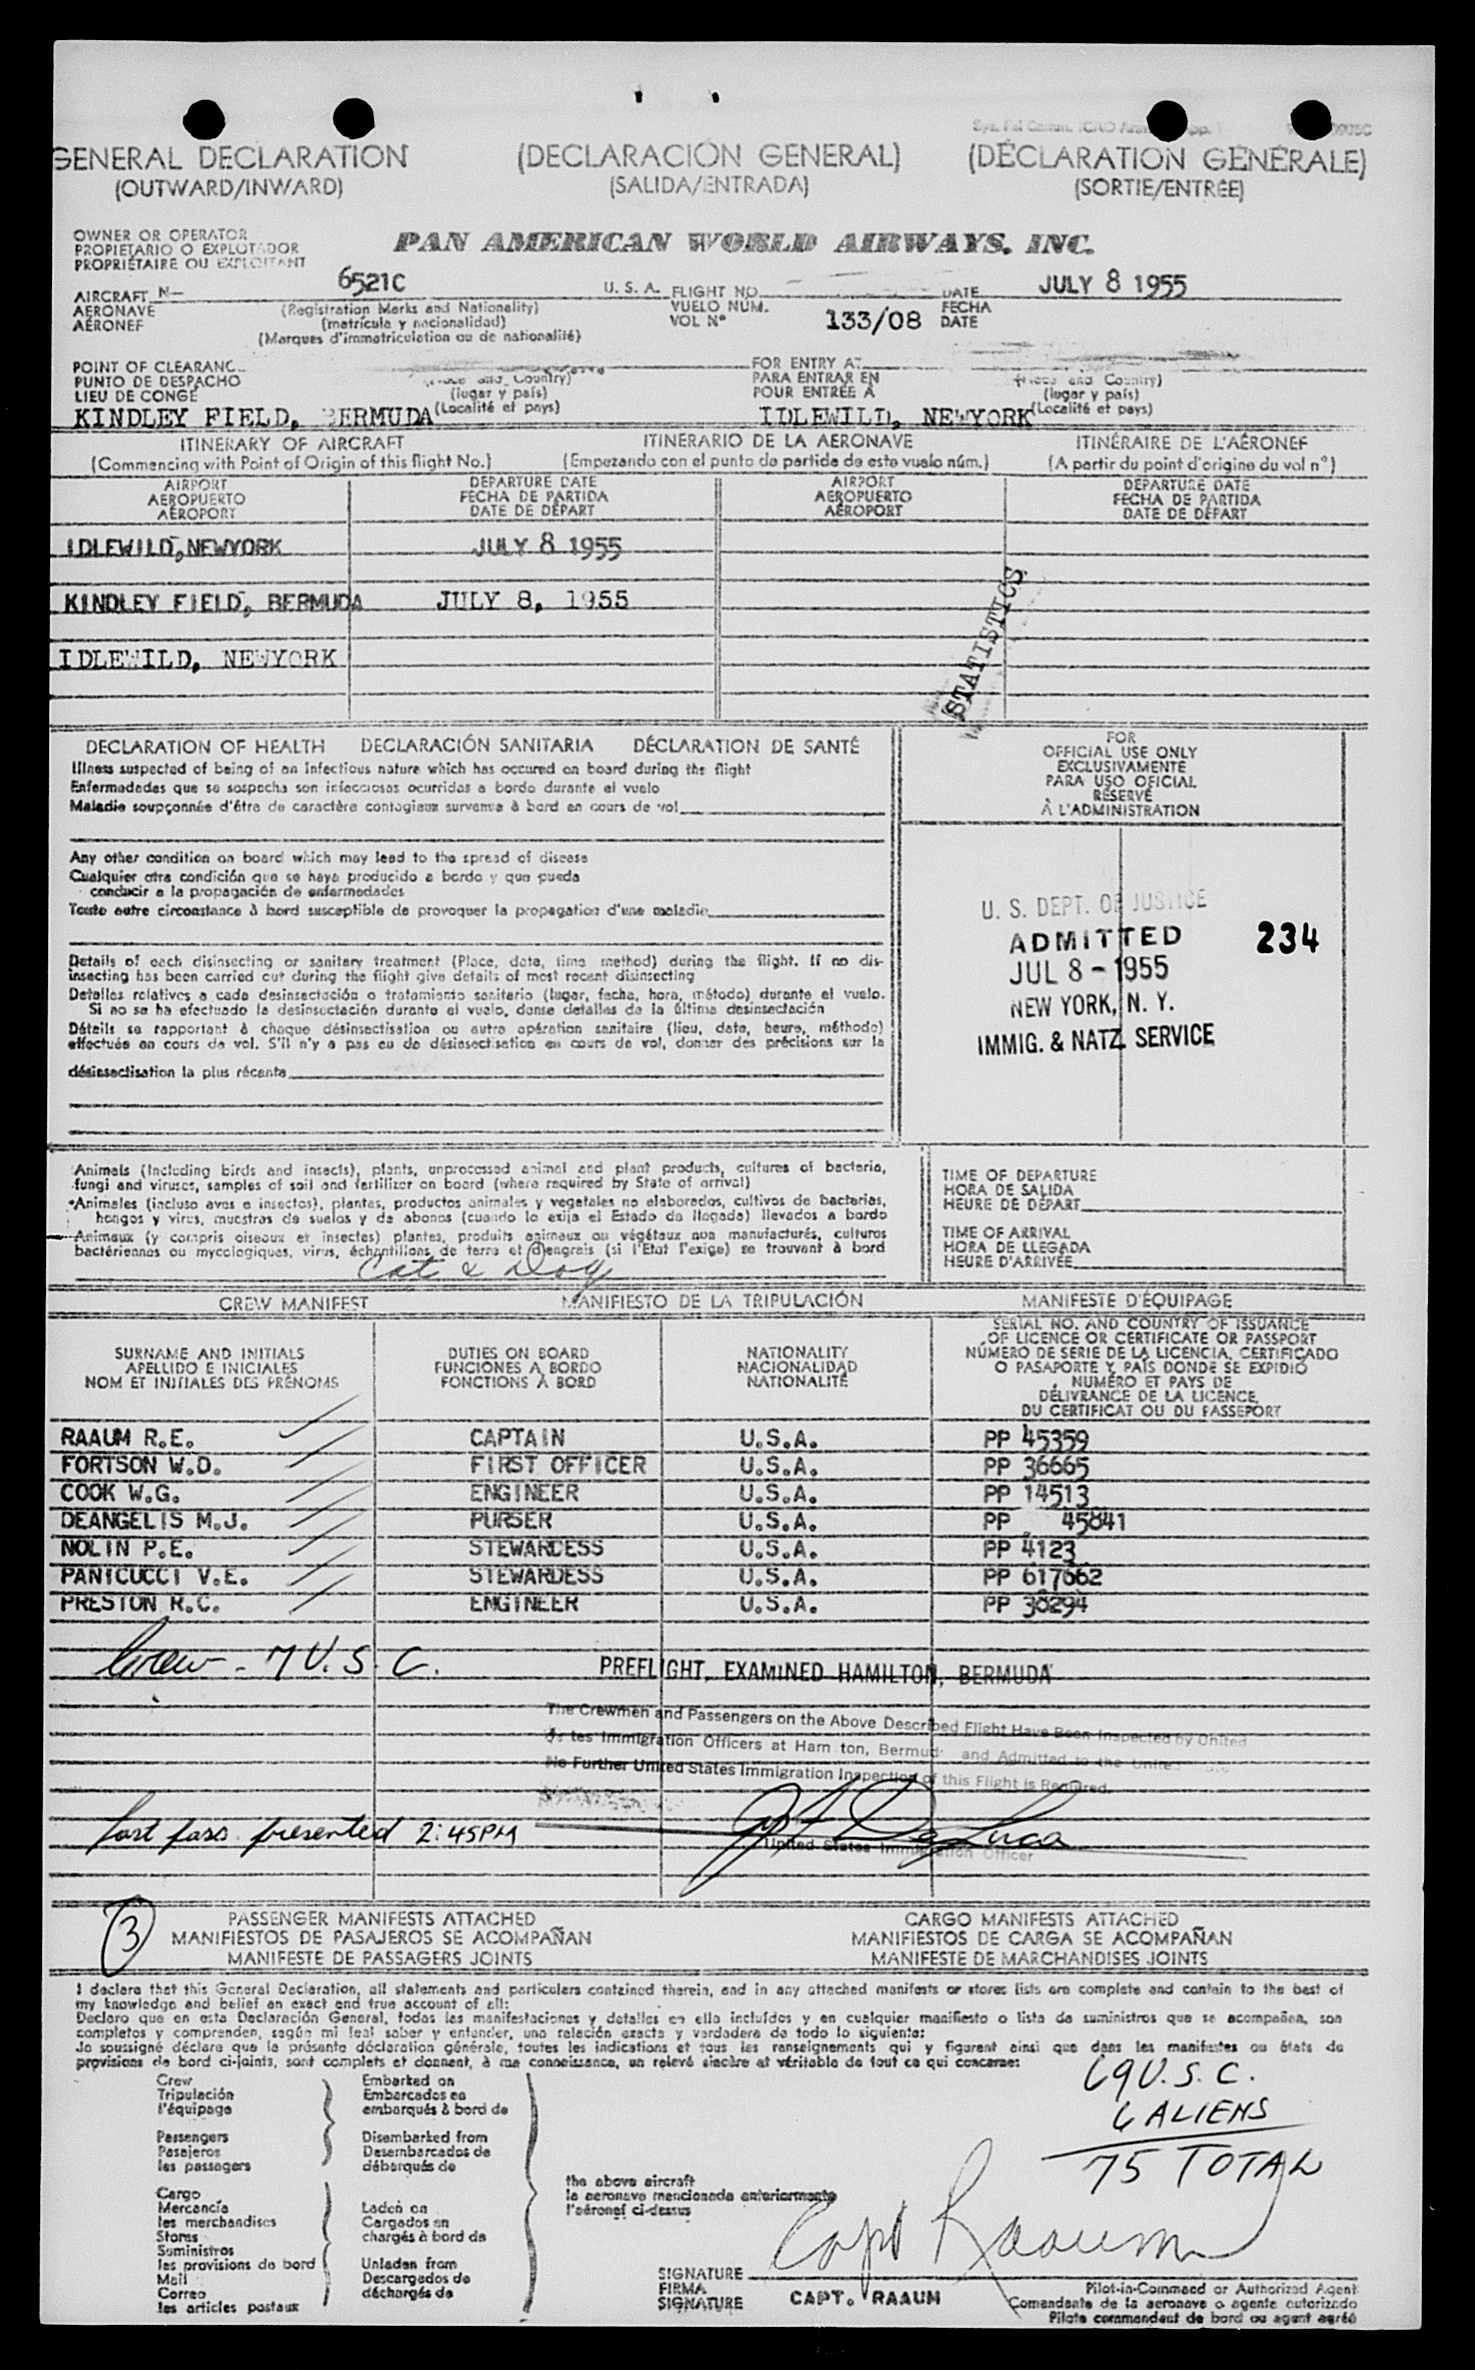 GENERAL DECLARATION (DECLARACIÓN GENERAL) (DÉCLARATION GÉNÉRALE)
(OUTWARD/INWARD) (SALIDA/ENTRADA) (SORTIE/ENTRÉE)
OWNER OR OPERATOR
PROPIETARIO O EXPLOTADOR
PROPRIÉTAIRE OU EXPLOITANT
PAN AMERICAN WORLD AIRWAYS, INC.
AIRCRAFT N- 6521C U. S. A. FLIGHT NO. DATE JULY 8 1955
AERONAVE (Registration Marks and Nationality) VUELO NÚM. 133/08 FECHA
AÉRONEF (matrícula y nacionalidad) VOL Nº DATE
(Marques d'immatriculation ou de nationalité)
POINT OF CLEARANC FOR ENTRY AT
PUNTO DE DESPACHO and Country) PARA ENTRAR EN and Country)
LIEU DE CONGÉ (lugar y país) POUR ENTRÉE À (lugar y país)
KINDLEY FIELD, BERMUDA (Localité et pays) IDLEWILD, NEWYORK (Localité et pays)
ITINERARY OF AIRCRAFT ITINERARIO DE LA AERONAVE ITINÉRAIRE DE L'AÉRONEF
(Commencing with Point of Origin of this flight No.) (Empezando con el punto de partida de este vuelo núm.) (A partir du point d'origine du vol nº)
AIRPORT DEPARTURE DATE AIRPORT DEPARTURE DATE
AEROPUERTO FECHA DE PARTIDA AEROPUERTO FECHA DE PARTIDA
AÉROPORT DATE DE DÉPART AÉROPORT DATE DE DÉPART
IDLEWILD, NEWYORK JULY 8 1955
KINDLEY FIELD, BERMUDA JULY 8, 1955
IDLEWILD, NEWYORK
STATISTICS
DECLARATION OF HEALTH DECLARACIÓN SANITARIA DÉCLARATION DE SANTÉ
Illness suspected of being of an infectious nature which has occured on board during the flight
Enfermedades que se sospecha son infecciosas ocurridas a bordo durante el vuelo
Maladie soupçonnée d'être de caractère contagieux survenue à bord en cours de vol
Any other condition on board which may lead to the spread of disease
Cualquier otra condición que se haya producido a bordo y que pueda
conducir a la propagación de enfermedades
Toute autre circonstance à bord susceptible de provoquer la propagation d'une maladie
Details of each disinsecting or sanitary treatment (Place, date, time method) during the flight. If no dis-
insecting has been carried out during the flight give details of most recent disinsecting
Detalles relativos a cada desinsectación o tratamiento sanitario (lugar, fecha, hora, método) durante el vuelo.
Si no se ha efectuado la desinsectación durante el vuelo, dense detalles de la última desinsectación
Détails se rapportant à chaque désinsectisation ou autre opération sanitaire (lieu, date, heure, méthode)
effectuée en cours de vol. S'il n'y a pas eu de désinsectisation en cours de vol, donner des précisions sur la
désinsectisation la plus récente
FOR
OFFICIAL USE ONLY
EXCLUSIVAMENTE
PARA USO OFICIAL
RESERVÉ
À L'ADMINISTRATION
U. S. DEPT. OF JUSTICE
ADMITTED 234
JUL 8 - 1955
NEW YORK, N. Y.
IMMIG. & NATZ. SERVICE
Animals (Including birds and insects), plants, unprocessed animal and plant products, cultures of bacteria,
fungi and viruses, samples of soil and fertilizer on board (where required by State of arrival)
Animales (incluso aves e insectos), plantas, productos animales y vegetales no elaborados, cultivos de bacterias,
hongos y virus, muestras de suelos y de abonos (cuando lo exija el Estado de llegada) llevados a bordo
Animaux (y compris oiseaux et insectes) plantes, produits animaux ou végétaux non manufacturés, cultures
bactériennes ou mycologiques, virus, échantillons de terre et d'engrais (si l'Etat l'exige) se trouvant à bord
Cat & Dog
TIME OF DEPARTURE
HORA DE SALIDA
HEURE DE DÉPART
TIME OF ARRIVAL
HORA DE LLEGADA
HEURE D'ARRIVÉE
CREW MANIFEST MANIFIESTO DE LA TRIPULACIÓN MANIFESTE D'ÉQUIPAGE
SURNAME AND INITIALS
APELLIDO E INICIALES
NOM ET INITIALES DES PRÉNOMS
DUTIES ON BOARD
FUNCIONES A BORDO
FONCTIONS À BORD
NATIONALITY
NACIONALIDAD
NATIONALITÉ
SERIAL NO. AND COUNTRY OF ISSUANCE
OF LICENCE OR CERTIFICATE OR PASSPORT
NÚMERO DE SERIE DE LA LICENCIA, CERTIFICADO
O PASAPORTE Y PAÍS DONDE SE EXPIDIÓ
NUMÉRO ET PAYS DE
DÉLIVRANCE DE LA LICENCE,
DU CERTIFICAT OU DU PASSEPORT
RAAUM R.E. CAPTAIN U.S.A. PP 45359
FORTSON W.D. FIRST OFFICER U.S.A. PP 36665
COOK W.G. ENGINEER U.S.A. PP 14513
DEANGELIS M.J. PURSER U.S.A. PP 45841
NOLIN P.E. STEWARDESS U.S.A. PP 4123
PANICUCCI V.E. STEWARDESS U.S.A. PP 617662
PRESTON R.C. ENGINEER U.S.A. PP 38294
Crew - 7 U.S.C.
PREFLIGHT, EXAMINED HAMILTON, BERMUDA
The Crewmen and Passengers on the Above Described Flight Have Been Inspected by United
tes Immigration Officers at Ham ton, Bermud and Admitted to the Unite
No Further United States Immigration Inspection of this Flight is Required.
Last pass. presented 2:45PM
United States Immigration Officer
3
PASSENGER MANIFESTS ATTACHED CARGO MANIFESTS ATTACHED
MANIFIESTOS DE PASAJEROS SE ACOMPAÑAN MANIFIESTOS DE CARGA SE ACOMPAÑAN
MANIFESTE DE PASSAGERS JOINTS MANIFESTE DE MARCHANDISES JOINTS
I declare that this General Declaration, all statements and particulars contained therein, and in any attached manifests or stores lists are complete and contain to the best of
my knowledge and belief an exact and true account of all:
Declaro que en esta Declaración General, todas las manifestaciones y detalles en ella incluídos y en cualquier manifiesto o lista de suministros que se acompañen, son
completos y comprenden, según mi leal saber y entender, una relación exacta y verdadera de todo lo siguiente:
Je soussigné déclare que la présente déclaration générale, toutes les indications et tous les renseignements qui y figurent ainsi que dans les manifestes ou états de
provisions de bord ci-joints, sont complets et donnent, à ma connaissance, un relevé sincère et véritable de tout ce qui concerne:
Crew
Tripulación
l'équipage
Passengers
Pasajeros
les passagers
Cargo
Mercancía
les merchandises
Stores
Suministros
les provisions de bord
Mail
Correo
les articles postaux
Embarked on
Embarcados en
embarqués à bord de
Disembarked from
Desembarcados de
débarqués de
Laden on
Cargados en
chargés à bord de
Unladen from
Descargados de
déchargés de
the above aircraft
la aeronave mencionada anteriormente
l'aéronef ci-dessus
69 U.S.C.
6 ALIENS
75 TOTAL
Capt Raaum
SIGNATURE
FIRMA
SIGNATURE
CAPT. RAAUM
Pilot-in-Command or Authorized Agent
Comandante de la aeronave o agente autorizado
Pilote commandant de bord ou agent agréé